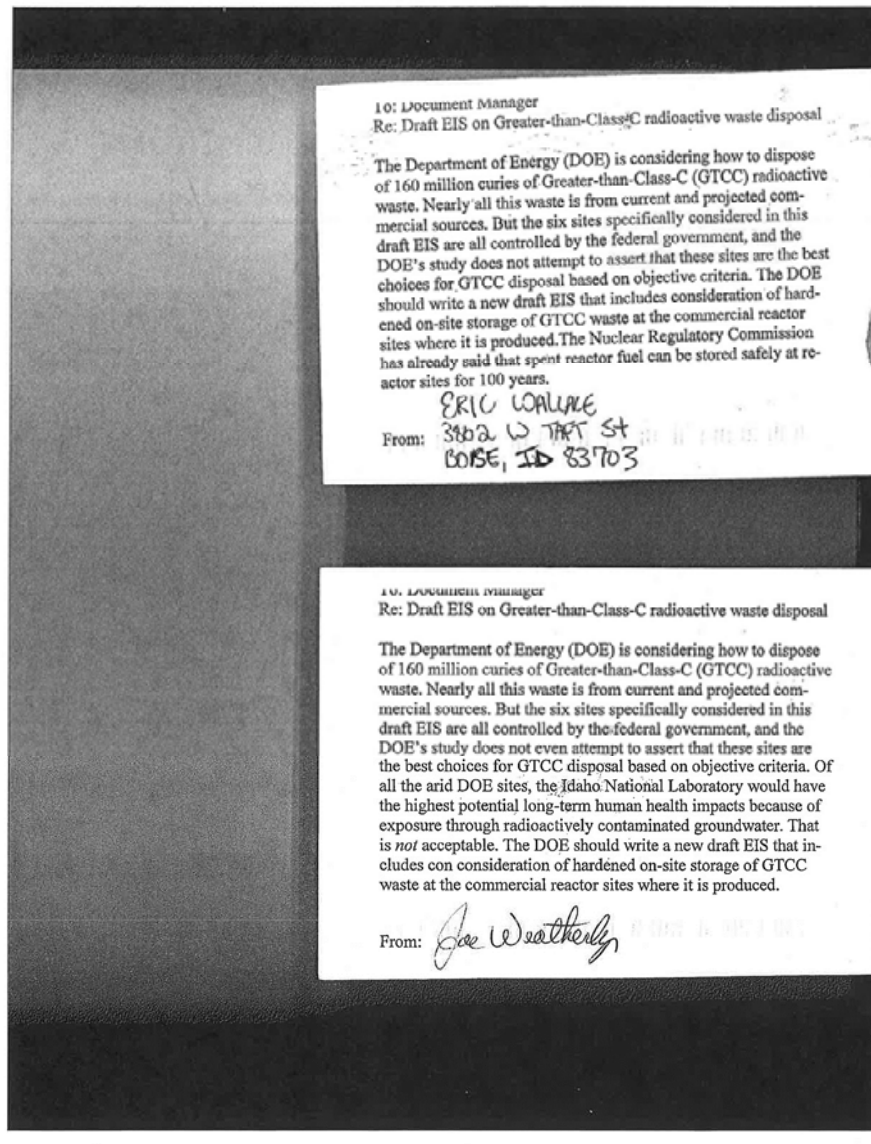 To: Document Manager
Re: Draft EIS on Greater-than-Class-C radioactive waste disposal
The Department of Energy (DOE) is considering how to dispose
of 160 million curies of Greater-than-Class-C (GTCC) radioactive
waste. Nearly all this waste is from current and projected com-
mercial sources. But the six sites specifically considered in this
draft EIS are all controlled by the federal government, and the
DOE's study does not attempt to assert that these sites are the best
choices for GTCC disposal based on objective criteria. The DOE
should write a new draft EIS that includes consideration of hard-
ened on-site storage of GTCC waste at the commercial reactor
sites where it is produced.The Nuclear Regulatory Commission
has already said that spent reactor fuel can be stored safely at re-
actor sites for 100 years.
ERIC WALLACE
From: 3802 W TAFT St
BOISE, ID 83703
To: Document Manager
Re: Draft EIS on Greater-than-Class-C radioactive waste disposal
The Department of Energy (DOE) is considering how to dispose
of 160 million curies of Greater-than-Class-C (GTCC) radioactive
waste. Nearly all this waste is from current and projected com-
mercial sources. But the six sites specifically considered in this
draft EIS are all controlled by the federal government, and the
DOE's study does not even attempt to assert that these sites are
the best choices for GTCC disposal based on objective criteria. Of
all the arid DOE sites, the Idaho National Laboratory would have
the highest potential long-term human health impacts because of
exposure through radioactively contaminated groundwater. That
is not acceptable. The DOE should write a new draft EIS that in-
cludes con consideration of hardened on-site storage of GTCC
waste at the commercial reactor sites where it is produced.
From: Joe Weatherly